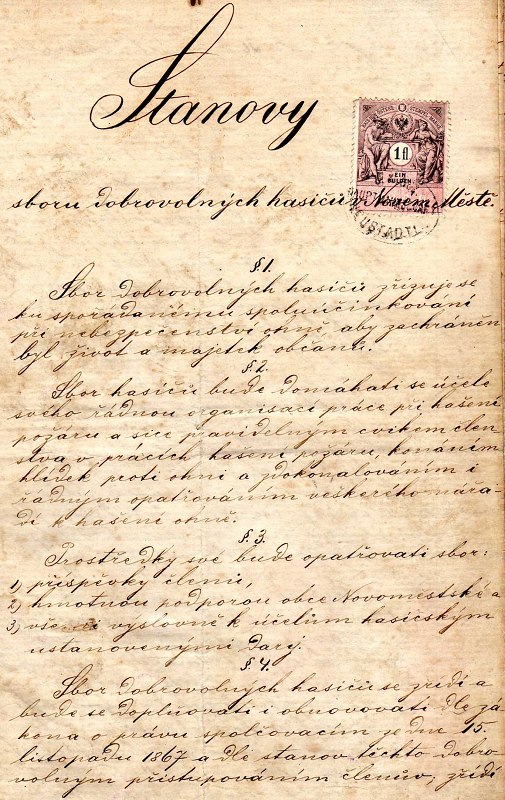 Stanovy
1 fl
EIN
GULDEN
sboru dobrovolných hasičů v Novem Městě.
NEUSTADTL
§ 1.
Sbor dobrovolných hasičů zřizuje se
ku spořádanému spoluúčinkování
při nebezpečenství ohně, aby zachráněn
byl život a majetek občanů.
§. 2.
Sbor hasičů bude domáhati se účele
svého řádnou organisací práce při hašení
požáru a sice pravidelným cvikem člen-
stva v pracích hašení požáru, konáním
hlídek proti ohni a zdokonalováním i
řádným opatřováním veškerého nářa-
dí k hašení ohně.
§. 3.
Prostředky své bude opatřovati sbor:
1) příspěvky členů,
2) hmotnou podporou obce Novoměstské a
3) všemi výslovně k účelům hasičským
ustanovenými dary.
§. 4.
Sbor dobrovolných hasičů se zřídí a
bude se doplňovati i obnovovati dle zá-
kona o právu spolčovacím ze dne 15.
listopadu 1867 a dle stanov těchto dobro-
volným přistupováním členův, zřídí